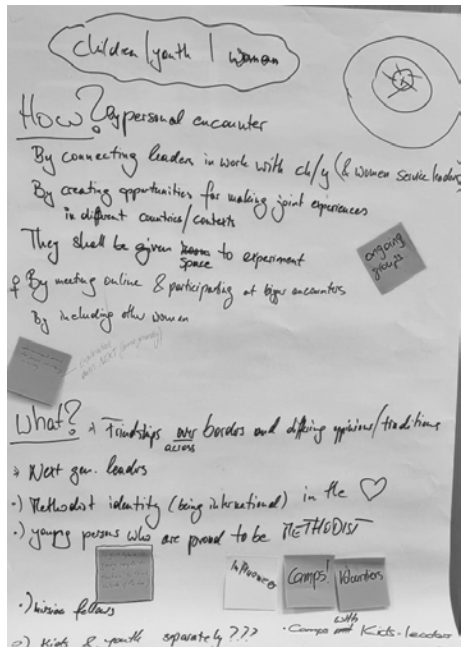 children/youth / women
How? By personal encounter
By connecting leaders in work with ch/y (& women service leaders)
By creating opportunities for making joint experiences
in different countries/contexts
They shall be given space to experiment
ongoing groups
♀ By meeting online & participating at bigger encounters
By including other women
What? → Friendships over across borders and differing opinions/traditions
→ Next gen. leaders
·) Methodist identity (being international) in the ♡
·) young persons who are proud to be METHODIST
Influencer
Camps!
Volunteers
·) mission fellows
· Camps with Kids-leaders
o) Kids & youth separately???